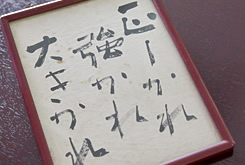 正しかれ
強かれ
大きかれ